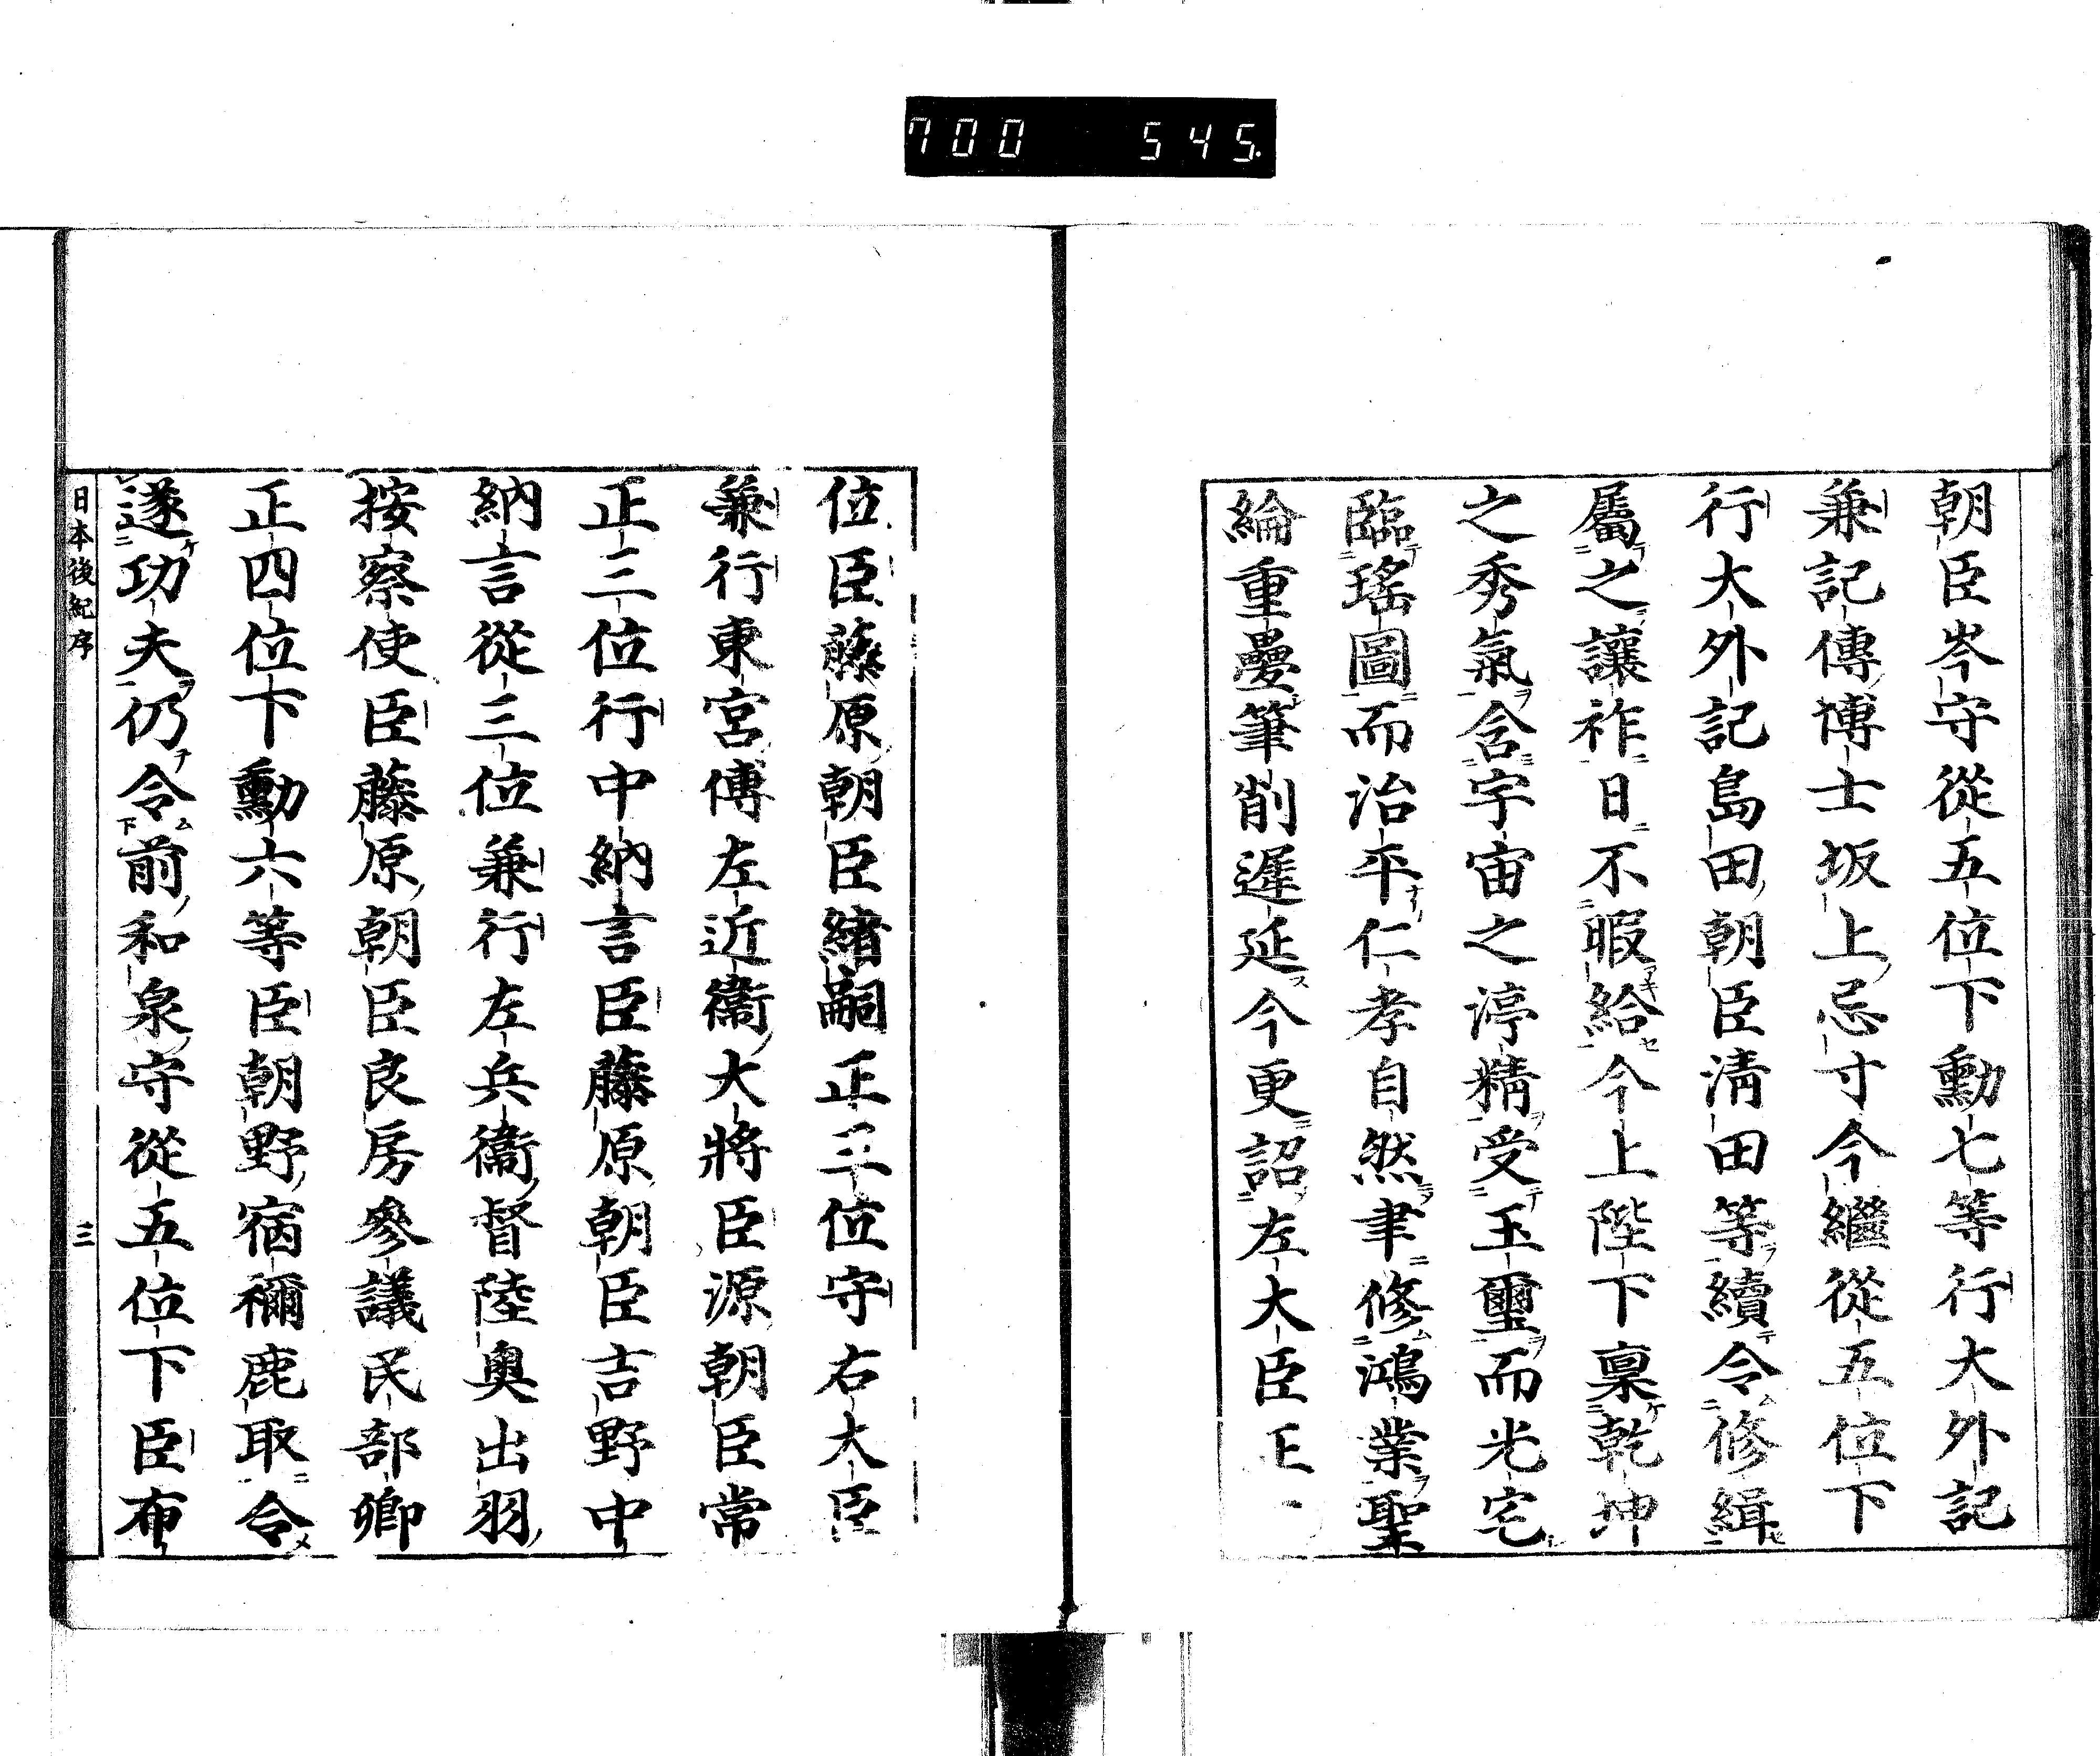 700 545.
朝臣岑守從五位下勳七等行大外記
兼記傳博士坂上忌寸今繼從五位下
行大外記島田朝臣清田等續令修緝
屬之讓祚日不暇給今上陛下稟乾坤
之秀氣含宇宙之渟精受玉璽而光宅
臨瑤圖而治平仁孝自然聿修鴻業聖
綸重疊筆削遲延今更詔左大臣正二
位臣藤原朝臣緒嗣正三位守右大臣
兼行東宮傅左近衞大將臣源朝臣常
正三位行中納言臣藤原朝臣吉野中
納言從三位兼行左兵衞督陸奧出羽
按察使臣藤原朝臣良房參議民部卿
正四位下勳六等臣朝野宿禰鹿取令
遂功夫仍令前和泉守從五位下臣布
日本後紀序 三